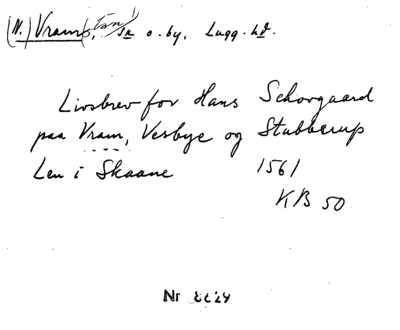 (N.) Vram, sn o. by, Lugg. hd.
Livsbrev for Hans Schovgaard
paa Vram, Vesbye og Stubberup
Len i Skaane 1561
KB 50
Nr